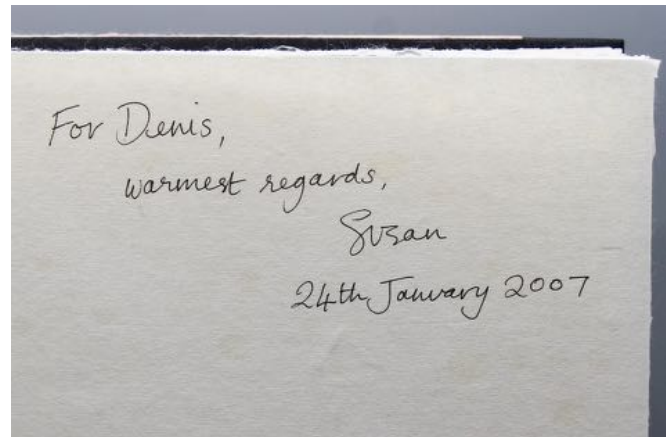 For Denis,
warmest regards,
Suzan
24th January 2007